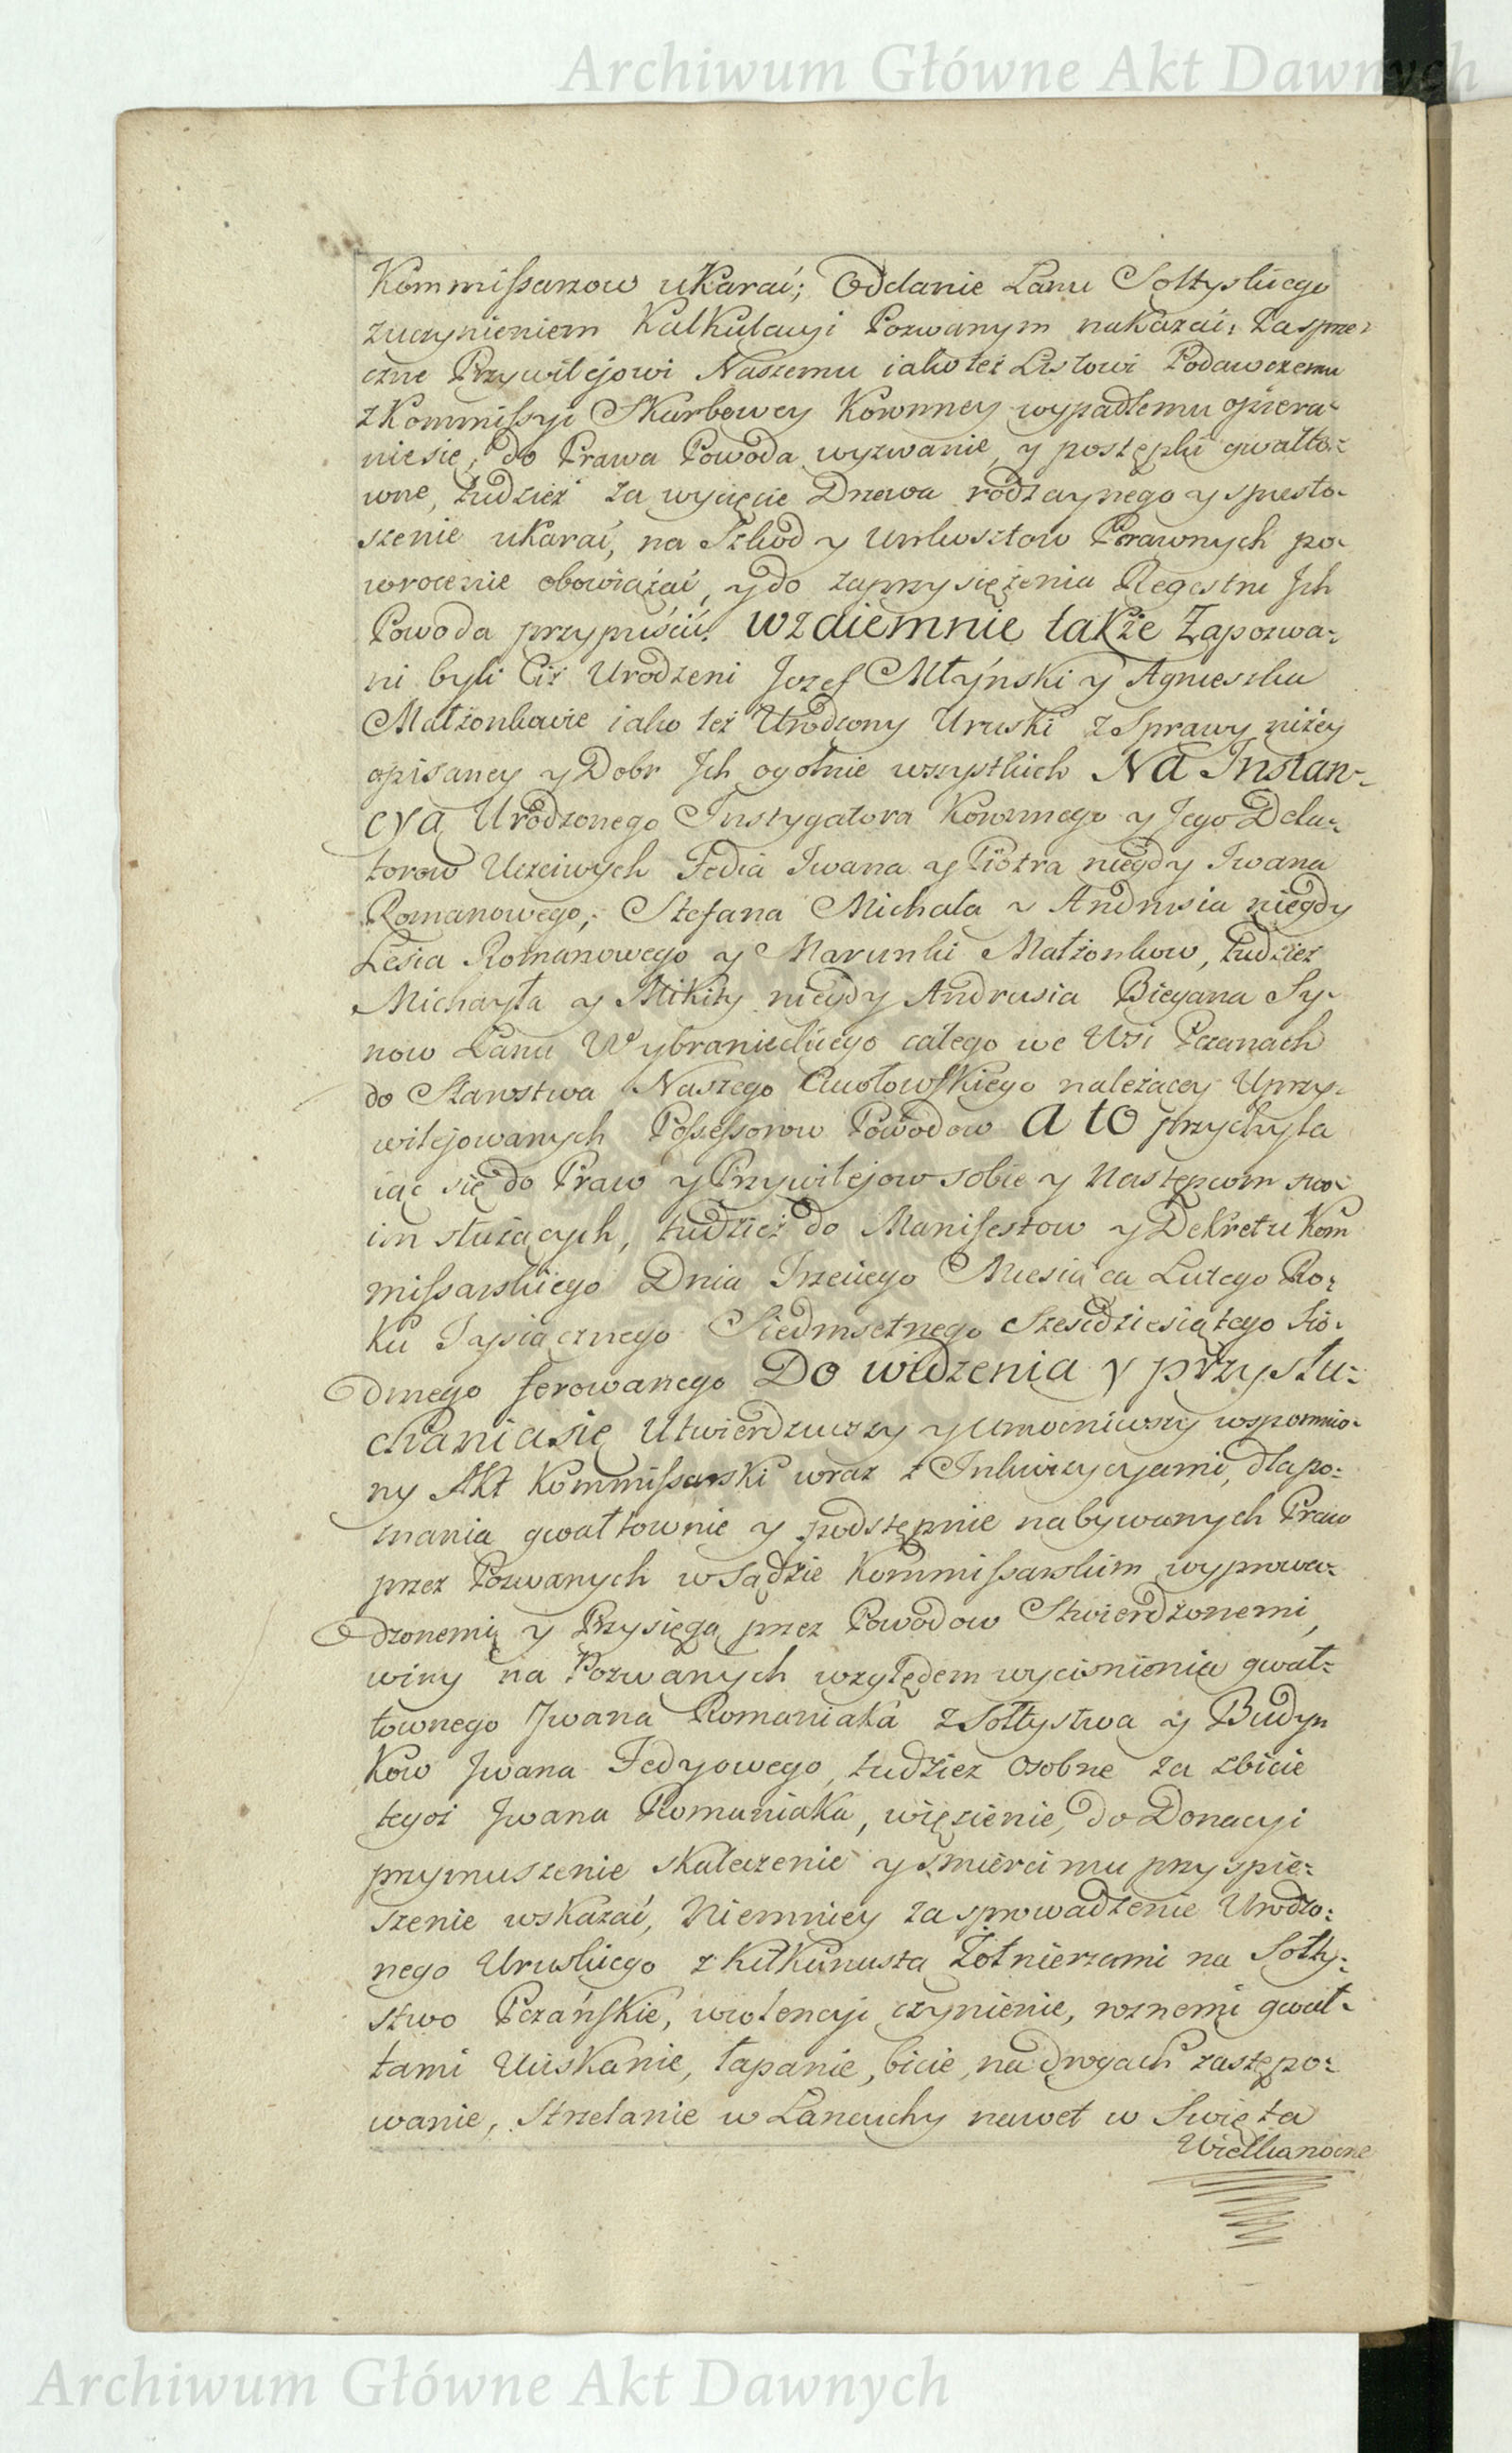 Archiwum Główne Akt Dawnych
Kommissarzow ukarać; Oddanie Łanu Sołtyskiego
zuczynieniem Kalkulacyi Pozwanym nakazać; Za sprze-
czne Przywilejowi Naszemu iako też Listowi Podawczemu
z Kommissyi Skarbowey Koronney wypadłemu opiera-
niesię, do Prawa Powoda wyzwanie, y postępki gwałto-
wne, tudzież za wycięcie Drzewa rodzaynego y spusto-
szenie ukarać, na Szkod y Unkosztow Prawnych po-
wrocenie obowiązać, y do zaprzysiężenia Regestru Ich
Powoda przypuścić. Wzaiemnie także Zapozwa-
ni byli Ciż Urodzeni Jozef Młyński y Agnieszka
Małżonkowie iako też Urodzony Uruski z Sprawy niżey
opisaney y Dobr Ich ogolnie wszystkich Na Instan-
cyą Urodzonego Instygatora Koronnego y Jego Dela-
torow Uczciwych Fedia Iwana y Piotra niegdy Iwana
Romanowego, Stefana Michała y Andrusia niegdy
Lesia Romanowego y Marunki Małżonkow, tudzież
Michayła y Mikity niegdy Andrusia Biegana Sy-
now Łanu Wybranieckiego całego we Wsi Pczanach
do Starostwa Naszego należącey Uprzy-
wilejowanych Possessorow Powodow A to przychyla
iąc się do Praw y Przywilejow sobie y Następcom swo-
im służących, tudzież do Manifestow y Dekretu Kom
missarskiego Dnia Trzeciego Miesiąca Lutego Ro-
ku Tysiącznego Siedmsetnego Sześćdziesiątego Sio-
dmego ferowanego Do widzenia y przysłu-
chania się Utwierdziwszy y umocniwszy wspomnio-
ny Akt Kommissarski wraz z Inkwizycyjami, dla po-
znania gwałtownie y podstępnie nabywanych Praw
przez Pozwanych w Sądzie Kommissarskim wyprowa-
dzonemi y Przysięgą przez Powodow Stwierdzonemi,
winy na Pozwanych względem wyciśnienia gwał-
townego Iwana Romaniaka z Sołtystwa y Budyn
kow Iwana Fedyowego, tudzież osobne za zbicie
tegoż Iwana Romaniaka, więzienie, do Donacyi
przymuszenie skaleczenie y śmierci mu przyspie-
szenie wskazać, Niemniey za sprowadzenie Urodzo-
nego Uruskiego z kilkunasta Żołnierzami na Sołty-
stwo Pczańskie, wiolencyi czynienie, roznemi gwał-
tami Uciskanie, łapanie, bicie, na drogach zastępo-
wanie, Strzelanie w Łancuchy nawet w Święta
Wielkanocne
Archiwum Główne Akt Dawnych